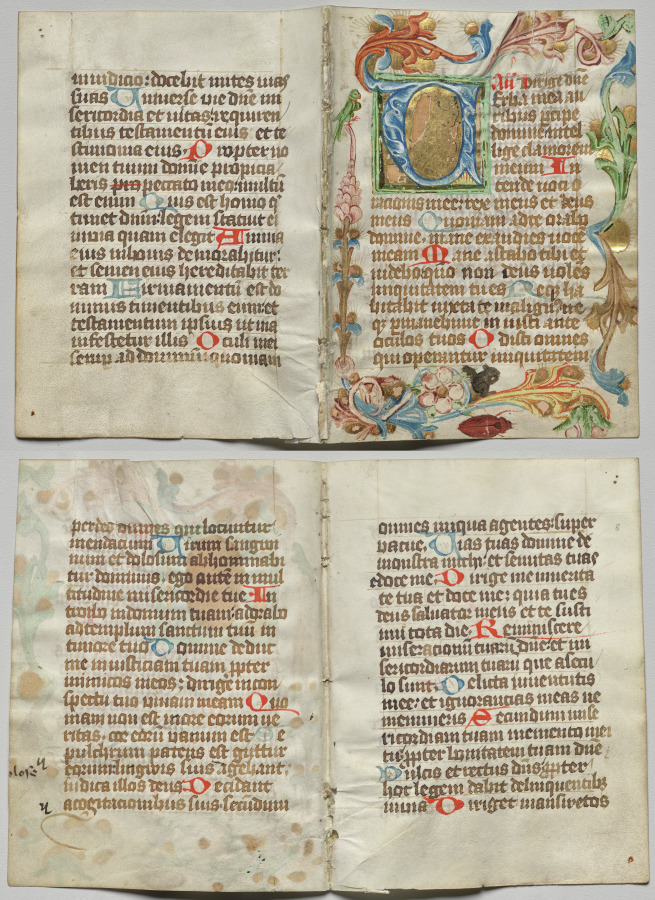 in iudicio: docebit mites vias
suas Uniuerse vie dñe mi
sericordia et vitas: requiren
tibus testamentū eius et te
stimonia eius: Propter no
men tuum domine propicia
beris pro peccato meo: multū
est enim Quis est homo q̄
timet dnm: legem statuit ei
in via quam elegit Anima
eius in bonis demorabitur:
et semen eius hereditabit ter
ram Firmamentū est do
minus timentibus eum: et
testamentum ipsius ut ma
nifestetur illis Oculi mei
semp ad dominū quoniam
Añ Dirige dñe
Uerba mea au
ribus pcipe
domine: intel
lige clamorem
meum In
tende voci o
racionis mee: rex meus et deus
meus Quoniam ad te orabo
domine: mane exaudies vocē
meam Mane astabo tibi et
videbo: quo non deus volēs
iniquitatem tu es Neq̄ ha
bitabit iuxta te malign9: ne
q̄ pmanebunt iniusti ante
oculos tuos Odisti omnes
qui operantur iniquitatem
perdes omnes qui locuntur
mendacium Uirum sangwi
num et dolosum abhominabi
tur dominus: ego autē in mul
titudine misericordie tue In
troibo in domum tuam: adorabo
ad templum sanctum tuū in
timore tuo Domine deduc
me in iusticiam tuam: ppter
inimicos meos: dirige in con
spectu tuo viuam meam Quo
niam non est in ore eorum ve
ritas: cor eorū vanum est Se
pulchrum patens est guttur
eorum: lingwis suis agebant:
iudica illos deus Decidant
a cogitacionibus suis: secundum
omnes iniqua agentes: super
vacue. Uias tuas domine de
monstra michi: et semitas tuas
edoce me. Dirige me in verita
te tua et doce me: quia tu es
deus saluator meus et te susti
nui tota die. Reminiscere
miseracionū tuarū dñe: et mi
sericordiarum tuarū que a secu
lo sunt. Delicta iuuentutis
mee: et ignorancias meas ne
memineris Secundum mise
ricordiam tuam memento mei
tu: ppter bonitatem tuam dñe
Dulcis et rectus dns: ppter
hoc legem dabit delinquentib9
in via Diriget mansuetos